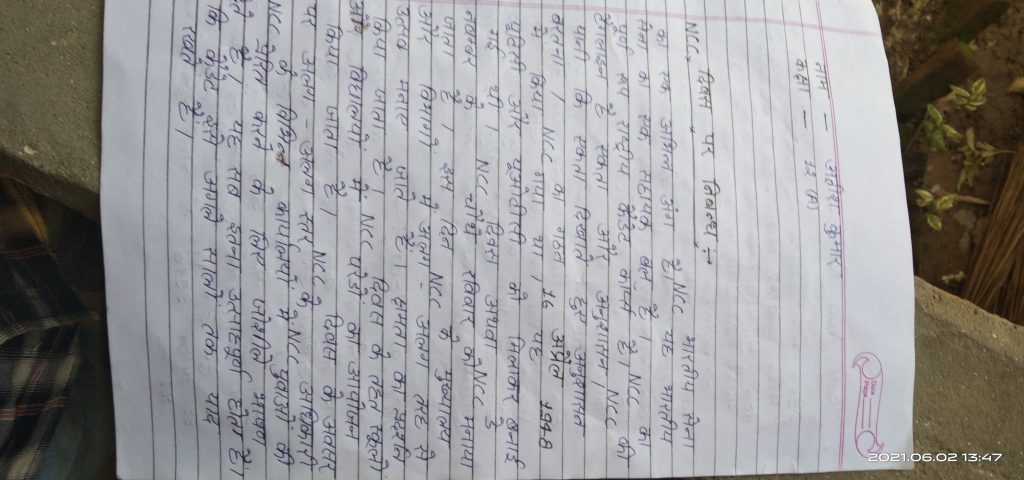 नाम - कुमार
कक्षा - 12 (A)
NCC दिवस पर निबन्ध :-
NCC भारतीय सेना
का एक अंग है। NCC यह भारतीय
सेना का एक सहायक बल है। NCC का
पूर्ण रूप राष्ट्रीय कैडेट कार्प्स है। NCC की
है एकता और अनुशासन। NCC
यानी कि एकता दिखाते हुए अनुशासन
करना। NCC का गठन 16 अप्रैल 1948
में किया गया था। यह
युनिटी और को मिलाकर बनाई
गई थी। NCC दिवस
नवम्बर के चौथे रविवार को NCC मनाया
जाता है। इस दिन NCC के मुख्यालय
और विभागों में अलग-अलग तरह से
उत्सव मनाए जाते हैं। का प्रदर्शन
किया जाता है। दिवस के तहत स्कूलों
और विद्यालयों में NCC परेडो का आयोजन
किया जाता है। NCC के दिवस के अवसर
पर अलग-अलग स्तर के NCC अधिकारी
NCC के विभिन्न कार्यालयों में NCC युवाओं को
प्रेरित करने के लिए भाषण
है। यह सब इतना उत्साहपूर्ण होता है।
कि कैडेट इसे आने वाले सालों तक याद
रखते है।
2021.06.02 13:47